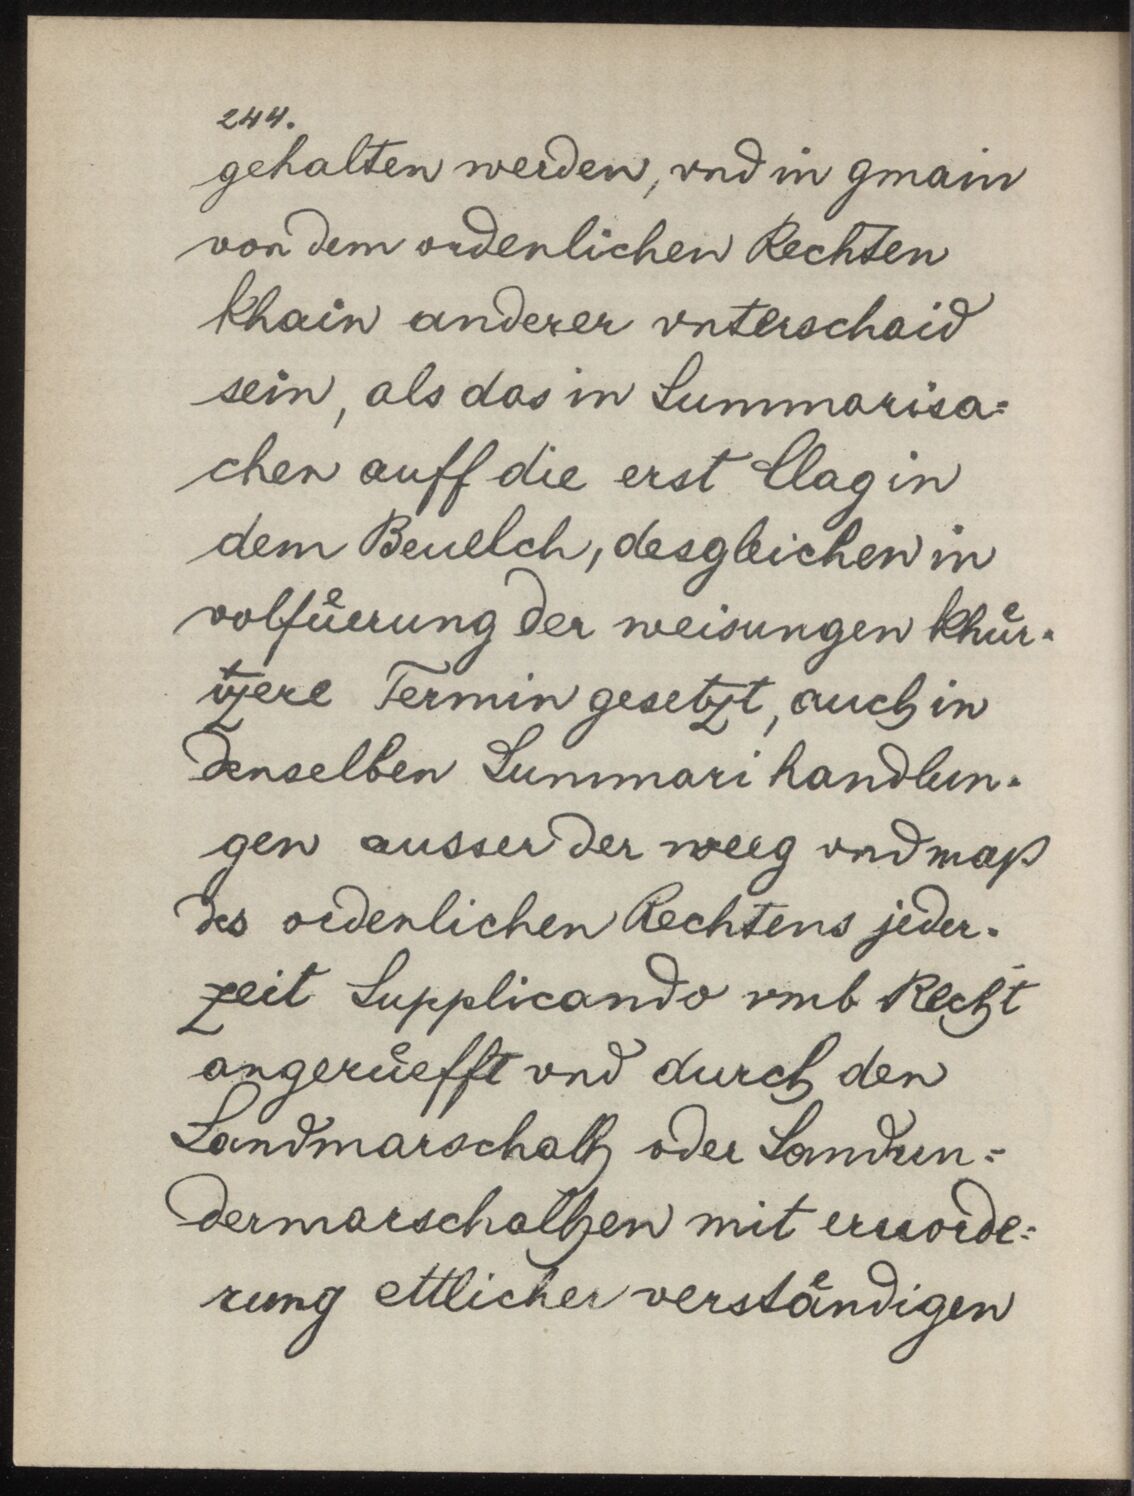 244.
gehalten werden, vnd in gmain
von dem ordenlichen Rechten
khain anderer vnterschaid
sein, als das in Summarisa=
chen auff die erst Clag in
dem Beuelch, desgleichen in
volfuͤerung der weisungen khuͤr=
tzere Termin gesetzt, auch in
denselben Summari handlun=
gen ausser der weeg vnd maß
des ordenlichen Rechtens jeder=
zeit Supplicando vmb Recht
angeruͤefft vnd durch den
Landmarschalh oder Landun=
dermarschalhen mit eruorde=
rung ettlicher verstaͤndigen